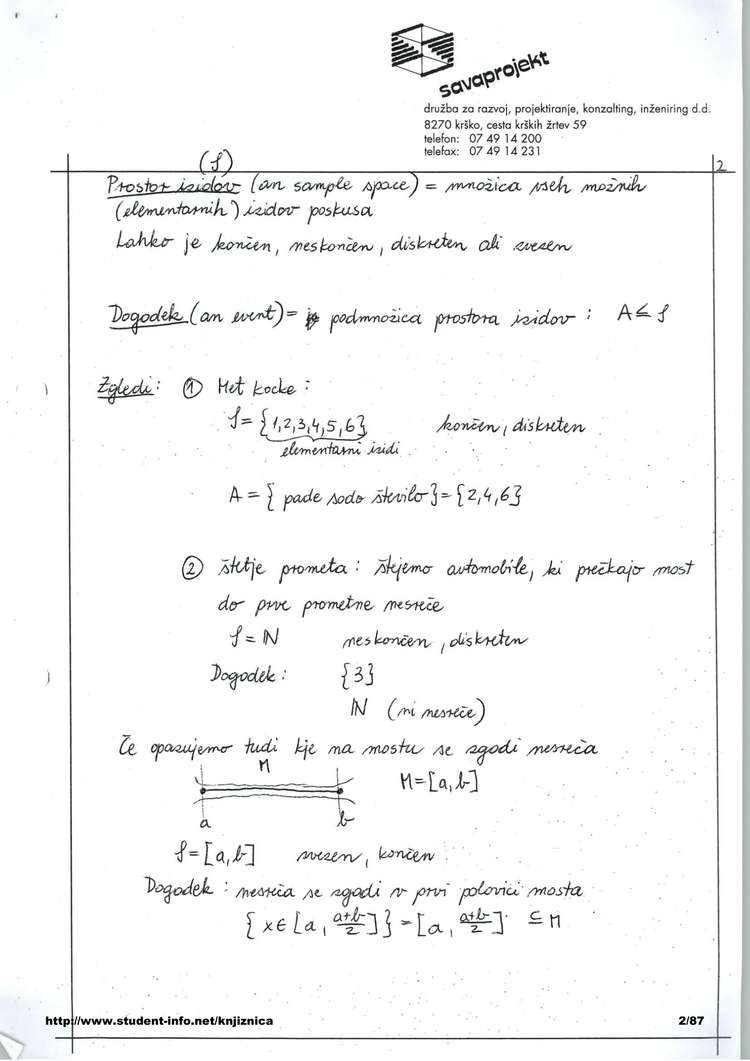 savaprojekt
družba za razvoj, projektiranje, konzalting, inženiring d.d.
8270 krško, cesta krških žrtev 59
telefon: 07 49 14 200
telefax: 07 49 14 231
2
(S)
Prostor izidov (an sample space) = množica vseh možnih
(elementarnih) izidov poskusa
Lahko je končen, neskončen, diskreten ali zvezen
Dogodek (an event) = podmnožica prostora izidov : A ⊆ S
Zgledi: ① Met kocke :
S = {1,2,3,4,5,6} končen, diskreten
elementarni izidi
A = { pade sodo število } = {2,4,6}
② štetje prometa : štejemo avtomobile, ki prečkajo most
do prve prometne nesreče
S = ℕ neskončen, diskreten
Dogodek : {3}
ℕ (ni nesreče)
Če opazujemo tudi kje na mostu se zgodi nesreča
M
M = [a,b]
a b
S = [a,b] zvezen, končen
Dogodek : nesreča se zgodi v prvi polovici mosta
{ x ∈ [a, (a+b)/2] } = [a, (a+b)/2] ⊆ M
http://www.student-info.net/knjiznica 2/87